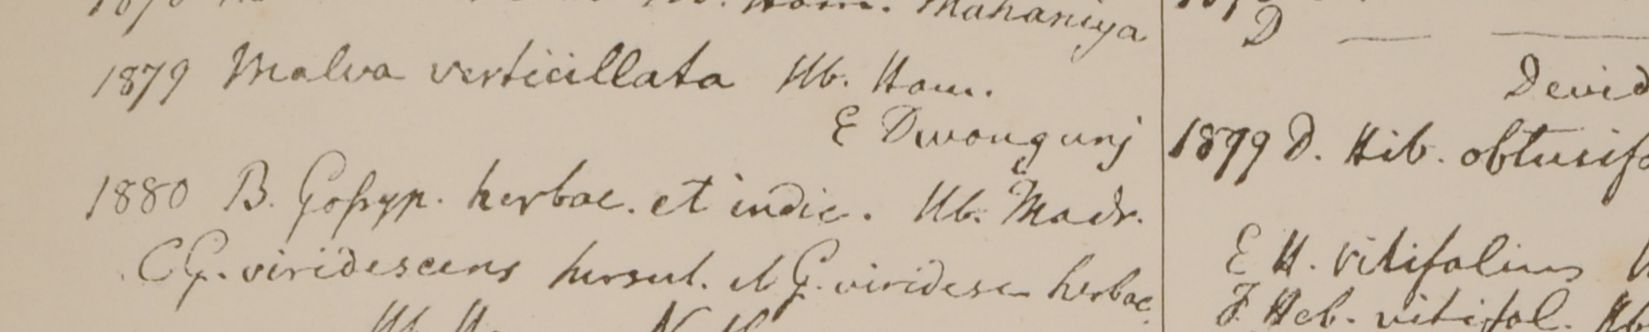 Mahaniya
1879 Malva verticillata Hb. Ham.
E Dwongunj
1880 B. Goſsyp. herbac. et indic. Hb. Madr.
C G. viridescens hirsut. et G. viridesc herbac.
D
David
1879 D. Hib. obtusifo
E H. vitifolius
F. Heb. vitifol. Hb